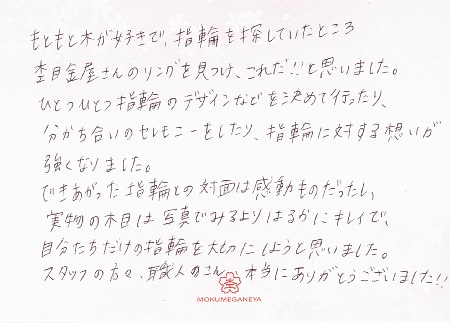 もともと木が好きで、指輪を探していたところ
杢目金屋さんのリングを見つけ、これだ!!と思いました。
ひとつひとつ指輪のデザインなどを決めて行ったり、
分かち合いのセレモニーをしたり、指輪に対する想いが
強くなりました。
できあがった指輪との対面は感動ものだったし、
実物の木目は写真でみるよりはるかにキレイで、
自分たちだけの指輪を大切にしようと思いました。
スタッフの方々、職人のさん、本当にありがとうございました!!
MOKUMEGANEYA